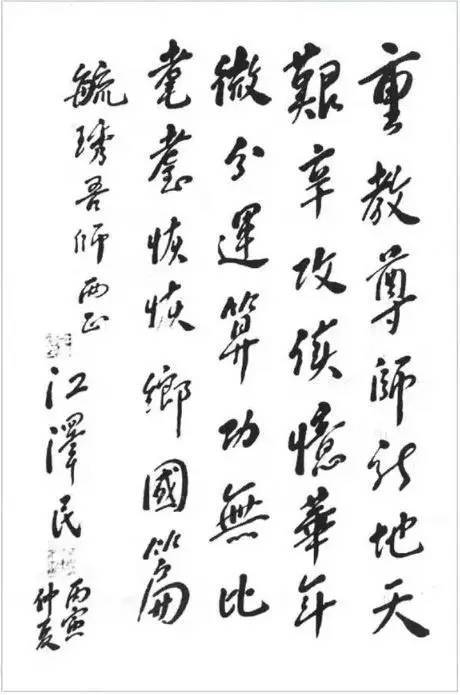 重教尊師新地天
艱辛攻读憶華年
微分運算功無比
耄耋恢恢鄉國篇
毓琇吾師两正
江澤民
丙寅
仲夏